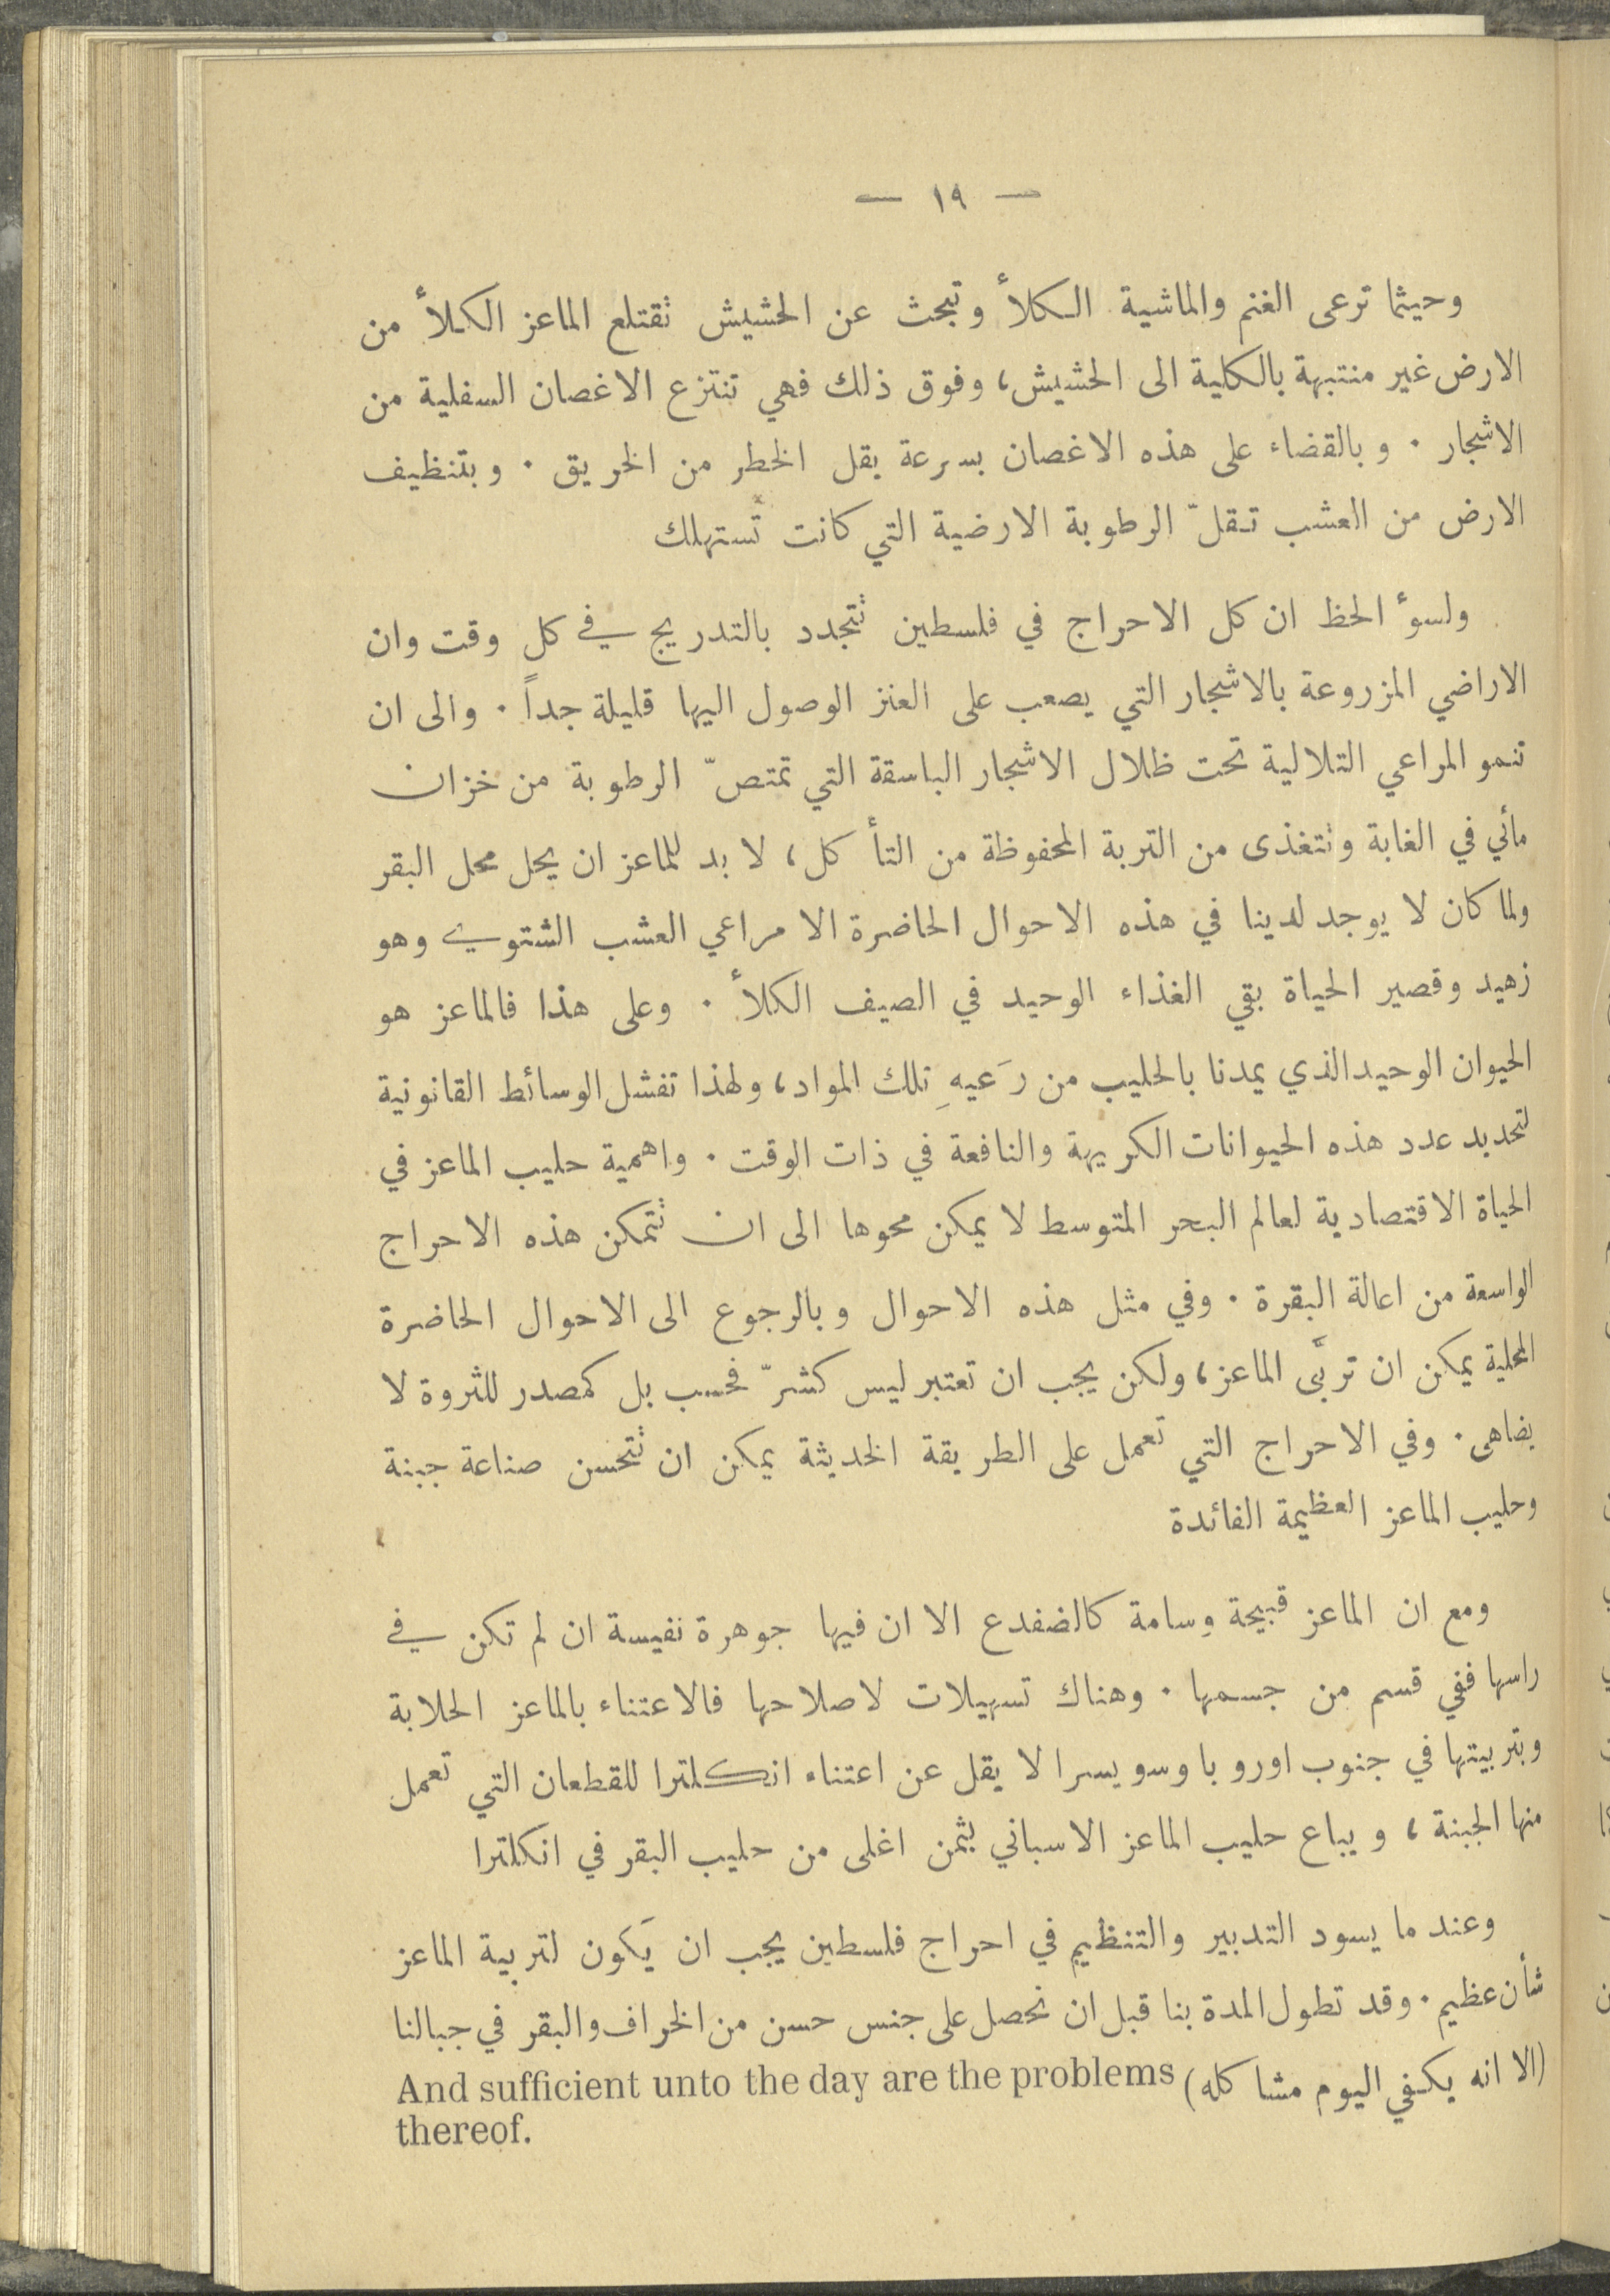 — ١٩ —
وحيثما ترعى الغنم والماشية الكلأ وتبحث عن الحشيش تقتلع الماعز الكلأ من
الارض غير منتبهة بالكلية الى الحشيش، وفوق ذلك فهي تنتزع الاغصان السفلية من
الاشجار . وبالقضاء على هذه الاغصان بسرعة يقل الخطر من الحريق . وبتنظيف
الارض من العشب تقلّ الرطوبة الارضية التي كانت تُستهلك
ولسوٴ الحظ ان كل الاحراج في فلسطين تتجدد بالتدريج في كل وقت وان
الاراضي المزروعة بالاشجار التي يصعب على العنز الوصول اليها قليلة جداً . والى ان
تنمو المراعي التلالية تحت ظلال الاشجار الباسقة التي تمتصّ الرطوبة من خزان
مائي في الغابة وتتغذى من التربة المحفوظة من التأكل، لا بد للماعز ان يحل محل البقر
ولما كان لا يوجد لدينا في هذه الاحوال الحاضرة الا مراعي العشب الشتوي وهو
زهيد وقصير الحياة بقي الغذاء الوحيد في الصيف الكلأ . وعلى هذا فالماعز هو
الحيوان الوحيد الذي يمدنا بالحليب من رَعيهِ تلك المواد، ولهذا تفشل الوسائط القانونية
لتحديد عدد هذه الحيوانات الكريهة والنافعة في ذات الوقت . واهمية حليب الماعز في
الحياة الاقتصادية لعالم البحر المتوسط لا يمكن محوها الى ان تتمكن هذه الاحراج
الواسعة من اعالة البقرة . وفي مثل هذه الاحوال وبالرجوع الى الاحوال الحاضرة
المحلية يمكن ان تربَّى الماعز، ولكن يجب ان تعتبر ليس كشرّ فحسب بل كمصدر للثروة لا
يضاهى . وفي الاحراج التي تعمل على الطريقة الحديثة يمكن ان تتحسن صناعة جبنة
وحليب الماعز العظيمة الفائدة
ومع ان الماعز قبيحة وسامة كالضفدع الا ان فيها جوهرة نفيسة ان لم تكن في
راسها ففي قسم من جسمها . وهناك تسهيلات لاصلاحها فالاعتناء بالماعز الحلابة
وبتربيتها في جنوب اوروبا وسويسرا لا يقل عن اعتناء انكلترا للقطعان التي تعمل
منها الجبنة، ويباع حليب الماعز الاسباني بثمن اغلى من حليب البقر في انكلترا
وعند ما يسود التدبير والتنظيم في احراج فلسطين يجب ان يَكون لتربية الماعز
شأن عظيم . وقد تطول المدة بنا قبل ان نحصل على جنس حسن من الخراف والبقر في جبالنا
(الا انه يكفي اليوم مشاكله) And sufficient unto the day are the problems
thereof.